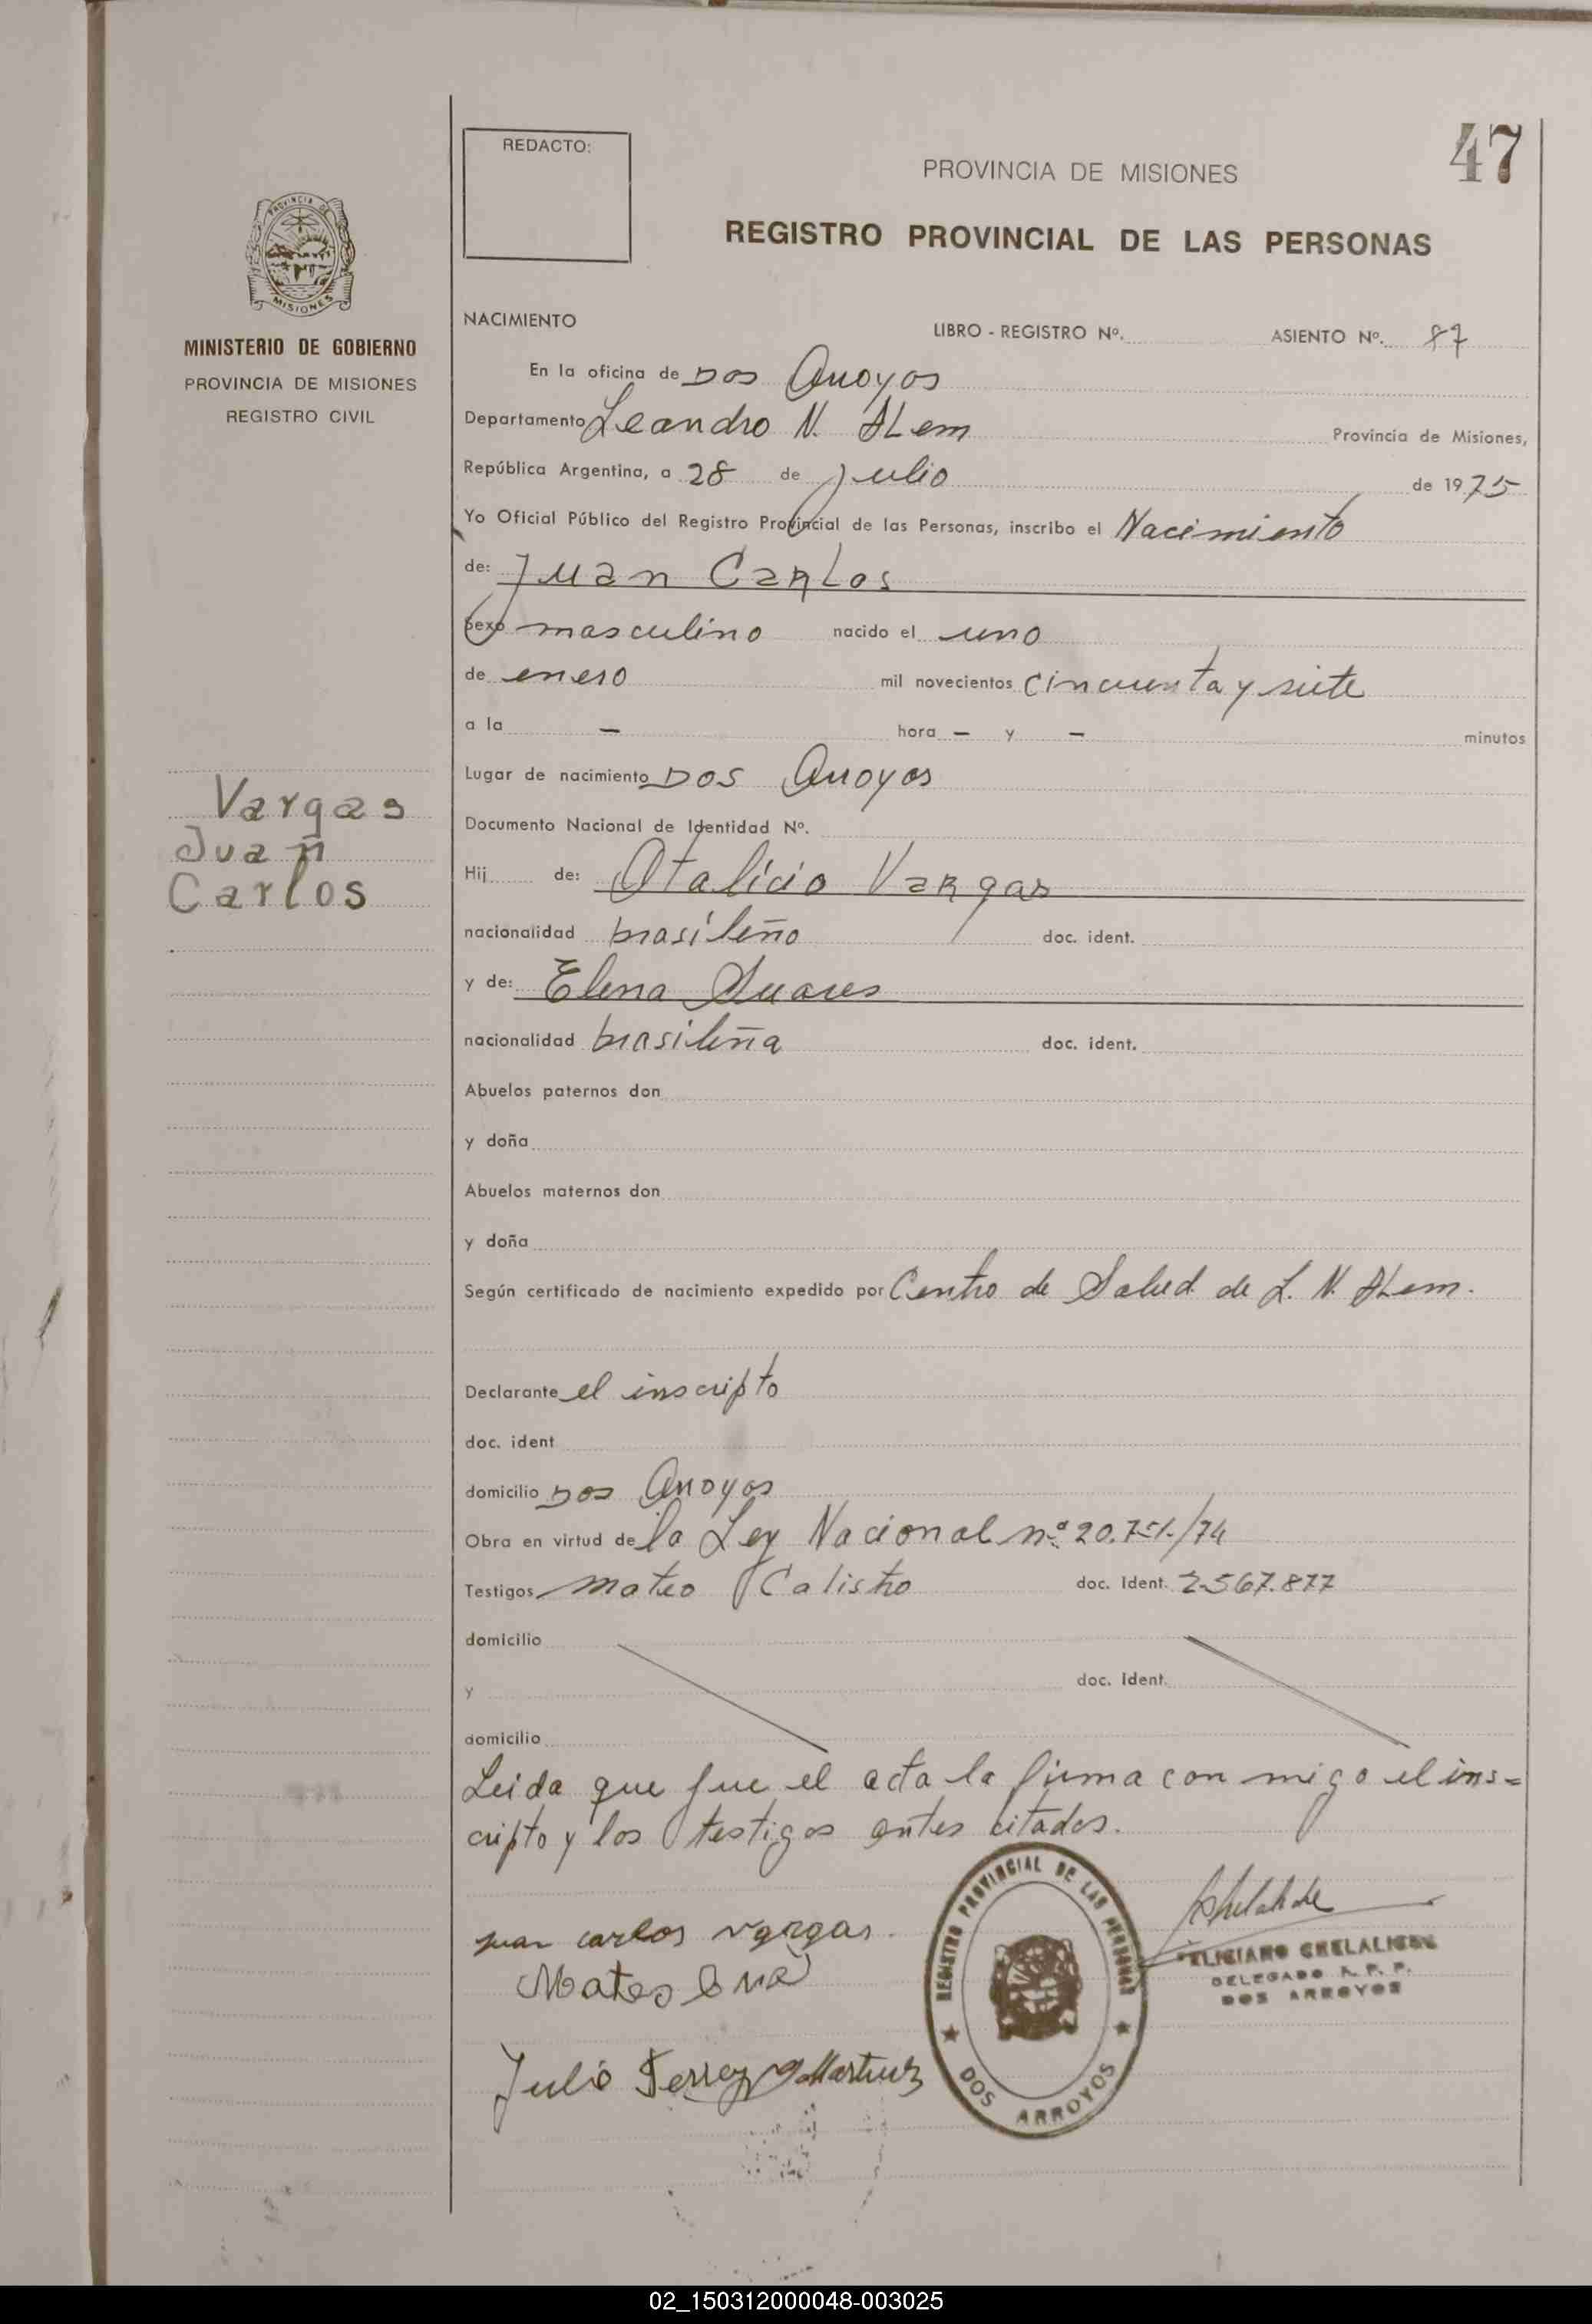 47
REDACTO:
PROVINCIA DE MISIONES
REGISTRO PROVINCIAL DE LAS PERSONAS
PROVINCIA DE
MISIONES
MINISTERIO DE GOBIERNO
PROVINCIA DE MISIONES
REGISTRO CIVIL
NACIMIENTO LIBRO - REGISTRO Nº. ASIENTO Nº. 87
En la oficina de Dos Arroyos
Departamento Leandro N. ALem Provincia de Misiones,
República Argentina, a 28 de Julio de 1975
Yo Oficial Público del Registro Provincial de las Personas, inscribo el Nacimiento
de: Juan Carlos
Sexo masculino nacido el uno
de enero mil novecientos cincuenta y siete
a la — hora — y — minutos
Lugar de nacimiento Dos Arroyos
Vargas
Juan
Carlos
Documento Nacional de Identidad Nº.
Hij de: Otalicio Vargas
nacionalidad brasileño doc. ident.
y de: Elena Suares
nacionalidad brasileña doc. ident.
Abuelos paternos don
y doña
Abuelos maternos don
y doña
Según certificado de nacimiento expedido por Centro de Salud de L. N. ALem.
Declarante el inscripto
doc. ident
domicilio Dos Arroyos
Obra en virtud de la Ley Nacional nº 20.751/74
Testigos Mateo Calistro doc. Ident. 2567.877
domicilio
y doc. Ident.
domicilio
Leida que fue el acta la firma con migo el ins=
cripto y los testigos antes citados.
juan carlos vargas.
Mateo
Julio Martinez
REGISTRO PROVINCIAL DE LAS PERSONAS
DOS ARROYOS
DELEGADO R. P. P.
DOS ARROYOS
02_150312000048-003025